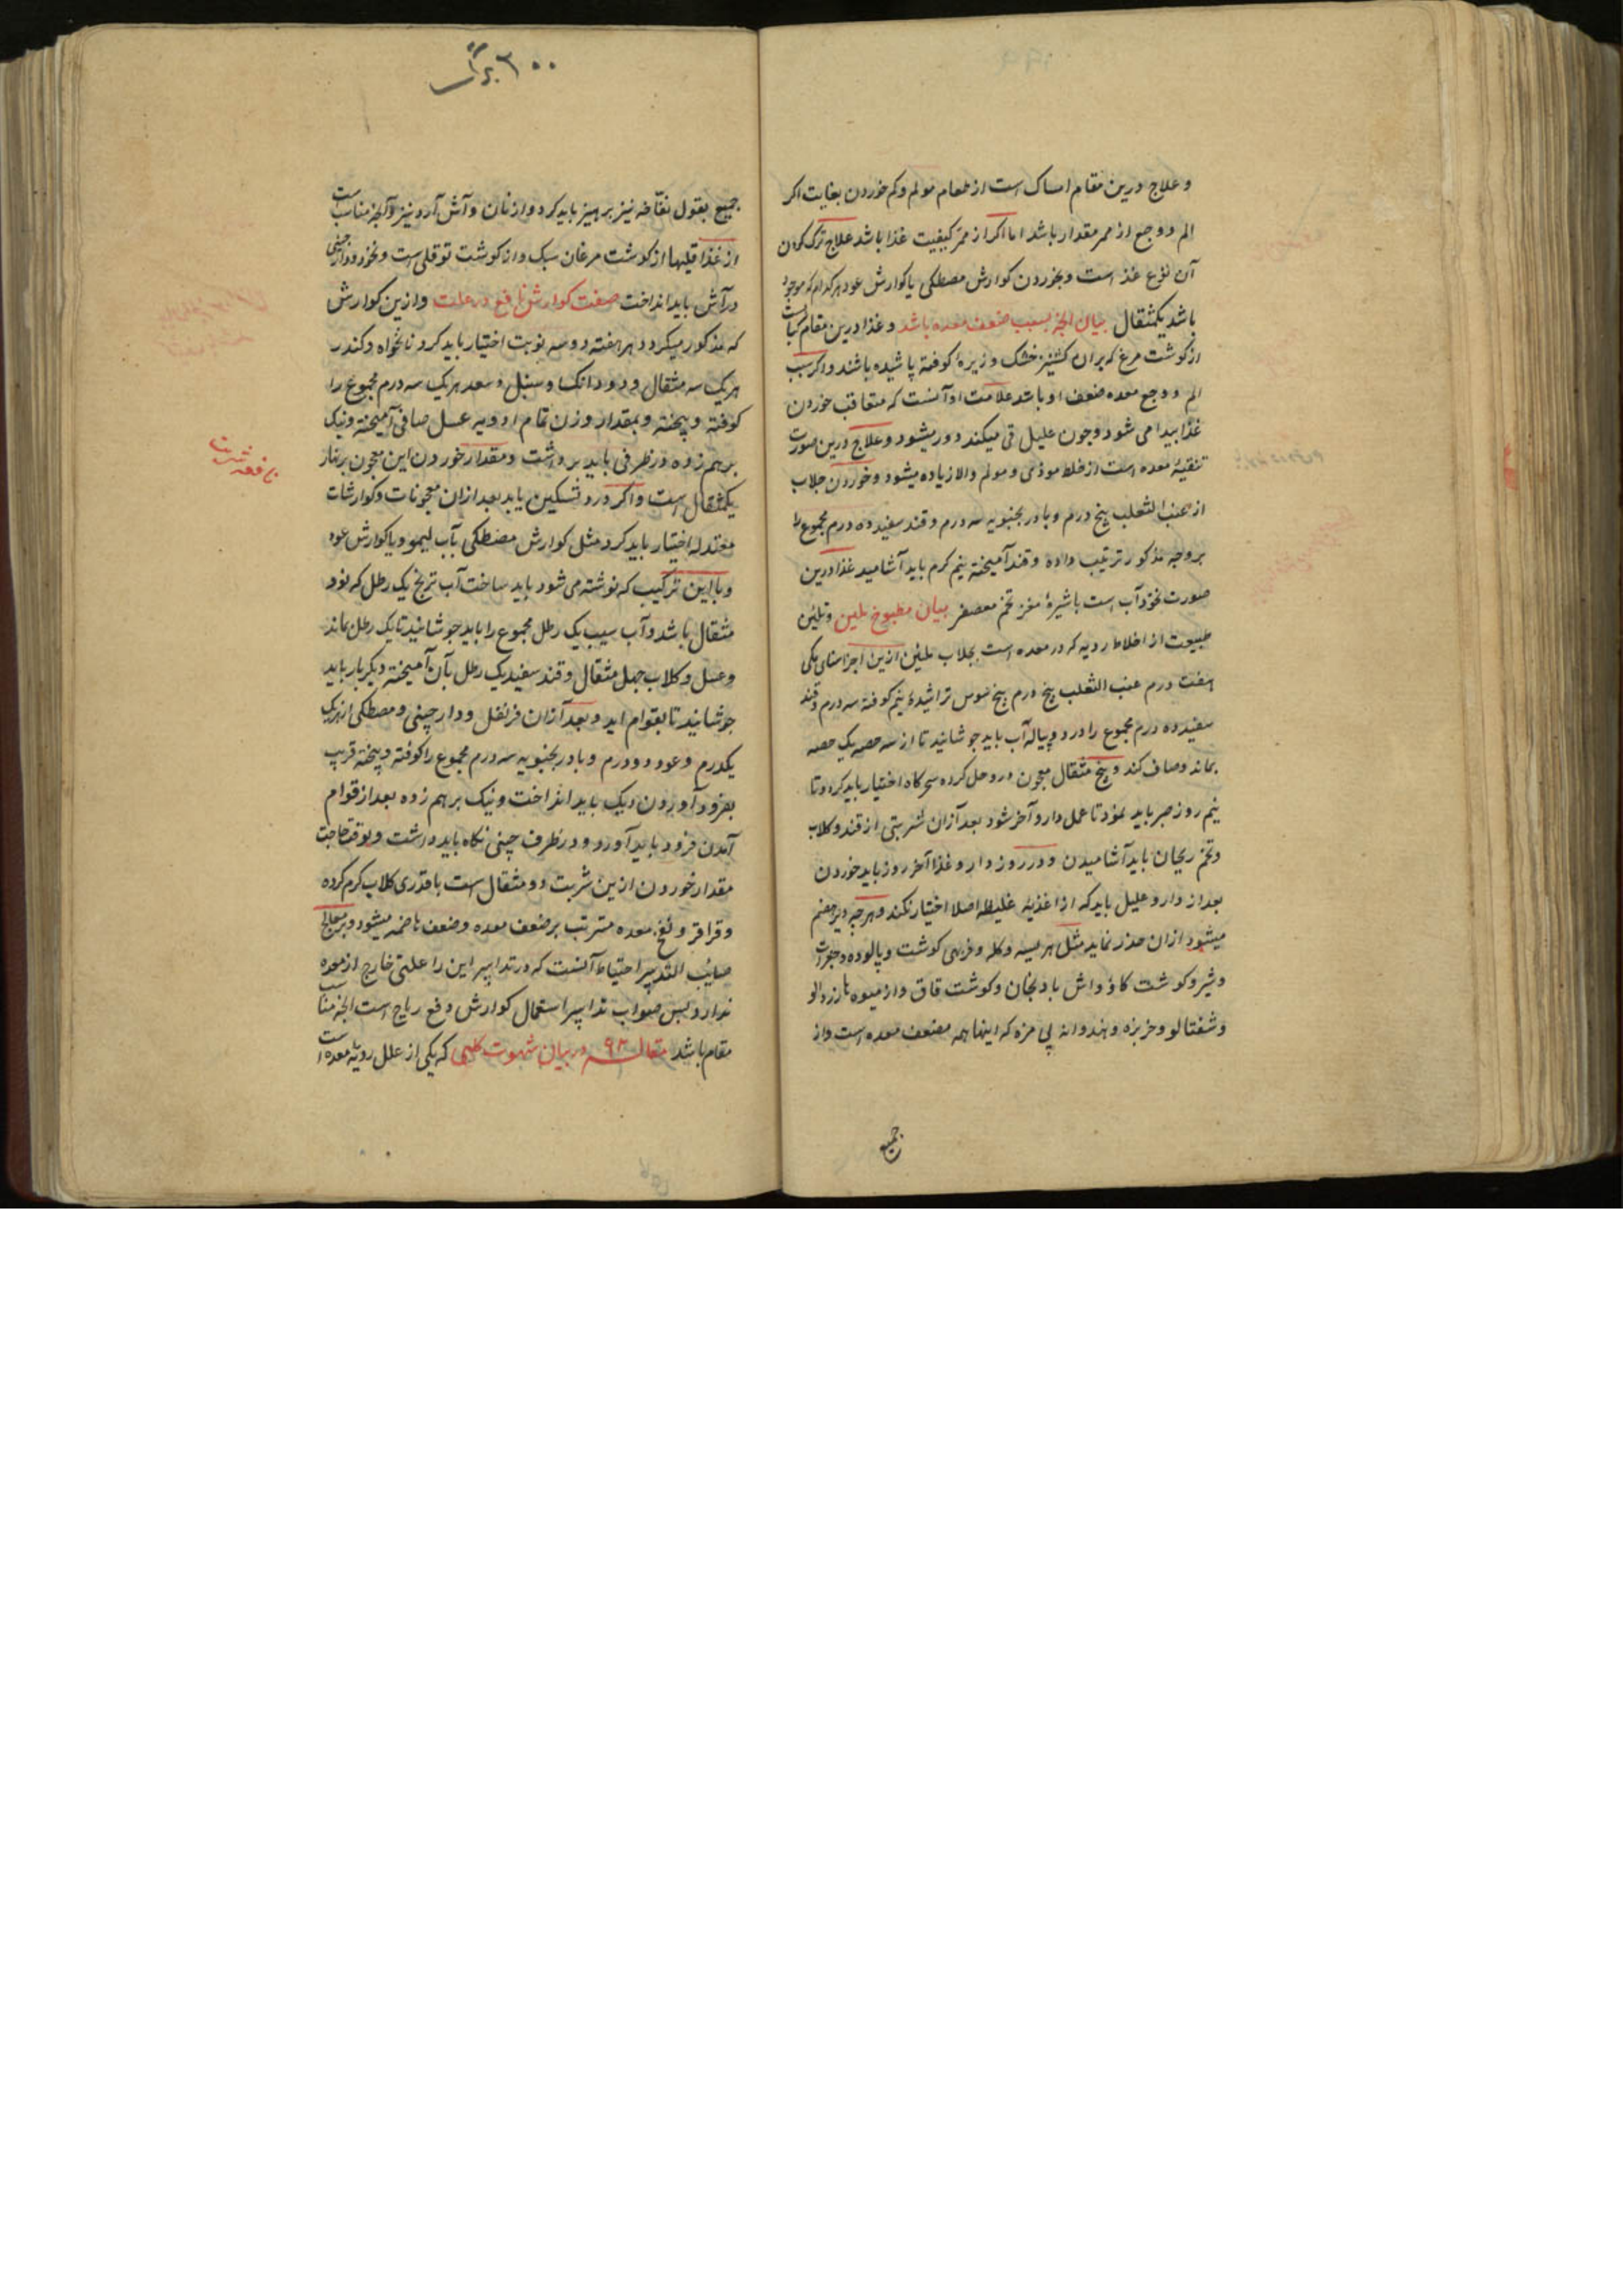 و علاج درین مقام امساک است از طعام مولم و کم خوردن بغایت اکر
الم و وجع از ممر مقدار باشد اما اکر از ممر کیفیت غذا باشد علاج ترک کردن
آن نوع غذ است و بخوردن کوارش مصطکی یا کوارش عود هر کدام که موجود
باشد یکمثقال بیان انجه بسبب ضعف معده باشد و غذا درین مقام کباب
از کوشت مرغ که بران کشنیز خشک و زیره کوفته پاشیده باشند و اکر سبب
الم و وجع معده ضعف او باشد علامت او آنست که متعاقب خوردن
غذا پیدا می شود و چون علیل قی میکند دور میشود و علاج درین صورت
تنقیهٔ معده است از خلط موذی و مولم والا زیاده میشود و خوردن جلاب
از عنب الثعلب پنج درم و بادرنجبویه سه درم و قند سفید ده درم مجموع را
بر وجه مذکور ترتیب داده و قند آمیخته نیم کرم باید آشامید غذا درین
صورت نخودآب است با شیرهٔ مغز تخم معصفر بیان مطبوخ ملین و تلئین
طبیعت از اخلاط ردیه که در معده است بجلاب ملئین ازین اجزا سنای مکی
هفت درم عنب الثعلب پنج درم بیخ سوس تراشیدهٔ نیم کوفته سه درم و قند
سفید ده درم مجموع را در دو پیاله آب باید جوشانید تا از سه حصه یک حصه
بماند و صاف کند و پنج مثقال معجون درو حل کرده سحرکاه اختیار باید کرد و تا
نیم روز صبر باید نمود تا عمل دارو آخر شود بعد آزان شربتی از قند و کلاب
و تخم ریحان باید آشامیدن و در روز دارو غذا آخر روز باید خوردن
بعد از دارو علیل باید که از اغذیه غلیظه اصلا اختیار نکند و هر چه دیر هضم
میشود ازان حذر نماید مثل هریسه و کله و فربهی کوشت و پالوده و جغرات
و شیر و کوشت کاو و اش بادنجان و کوشت قاق و از میوه ها زردالو
و شفتالو و خربزه و هندوانه بی مزه که اینها همه مضعف معده است و از
جمیع
۳۰۰
جمیع بقول نفاخه نیز پرهیز باید کرد و از نان و آش آرد نیز و آنچه مناسب است
از غذا قلیها از کوشت مرغان سبک و از کوشت توقلی است و نخود و دارچینی
در آش باید انداخت صفت کوارش نافع درعلت و ازین کوارش
که مذکور میکردد هر هفته دو سه نوبت اختیار باید کرد نانخواه و کندر
هر یک سه مثقال و دو دانک و سنبل و سعد هر یک سه درم مجموع را
کوفته و پیخته و بمقدار وزن تمام ادویه عسل صافی آمیخته و نیک
برهم زده در ظرفی باید برداشت و مقدار خوردن این معجون بر نهار
یکمثقال است و اکر درد تسکین یابد بعد ازان معجونات و کوارشات
معتدله اختیار باید کرد مثل کوارش مصطکی بآب لیمو و یا کوارش عود
و با این ترکیب که نوشته می شود باید ساخت آب ترنج یک رطل که نود
مثقال باشد و آب سیب یک رطل مجموع را باید جوشانید تا یک رطل بماند
و عسل و کلاب چهل مثقال و قند سفید یک رطل بآن آمیخته دیکر بار باید
جوشانید تا بقوام اید و بعد آزان قرنفل و دارچینی و مصطکی از هر یک
یکدرم و عود دو درم و بادرنجبویه سه درم مجموع را کوفته و پیخته قریب
بفرود آوردن دیک باید انداخت و نیک برهم زده بعد از قوام
آمدن فرود باید آورد و در ظرف چینی نکاه باید داشت و بوقت حاجت
مقدار خوردن ازین شربت دو مثقال است با قدری کلاب کرم کرده
و قراقر و نفخ معده مترتب بر ضعف معده و ضعف هاضمه میشود و بر معالج
صایب التدبیر احتیاط آنست که در تدابیر این را علتی خارج از معده
ندارد پس صواب تدابیر استعمال کوارش دفع ریاح است انچه مناسب
مقام باشد مقاله ۹۲ در بیان شهوت کلبی که یکی از علل ردیهٔ معده است